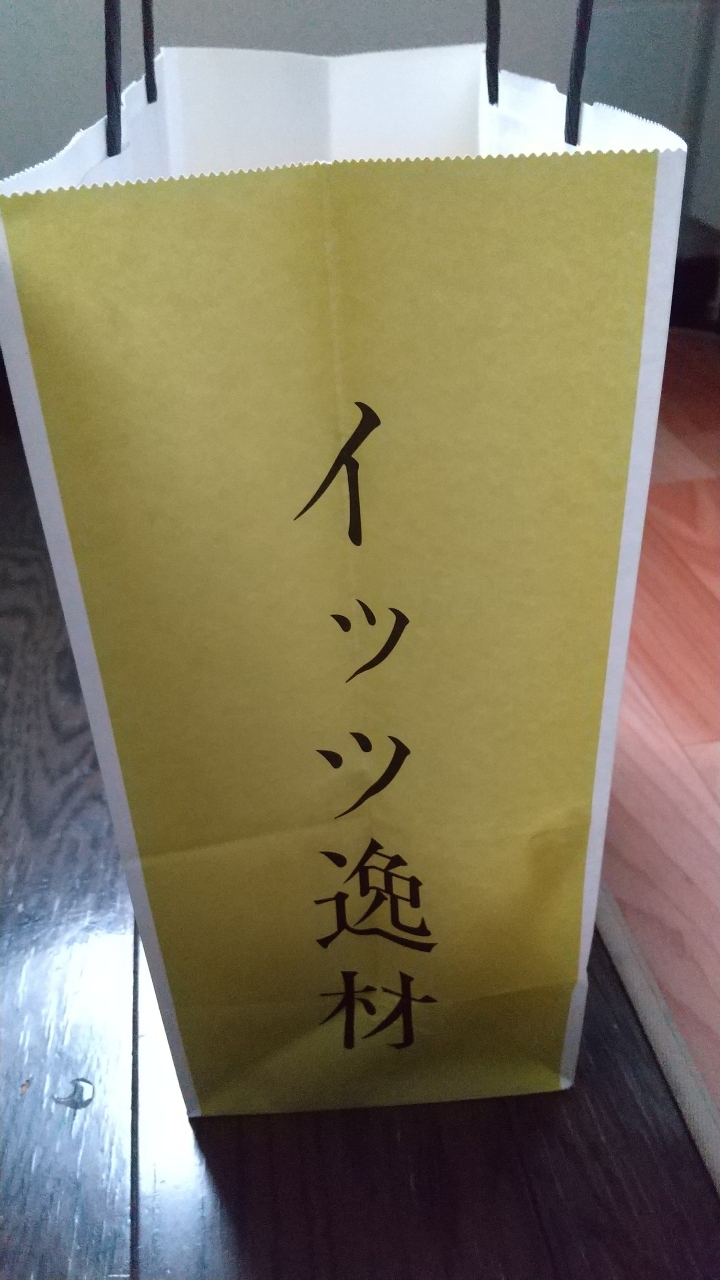 イッツ逸材